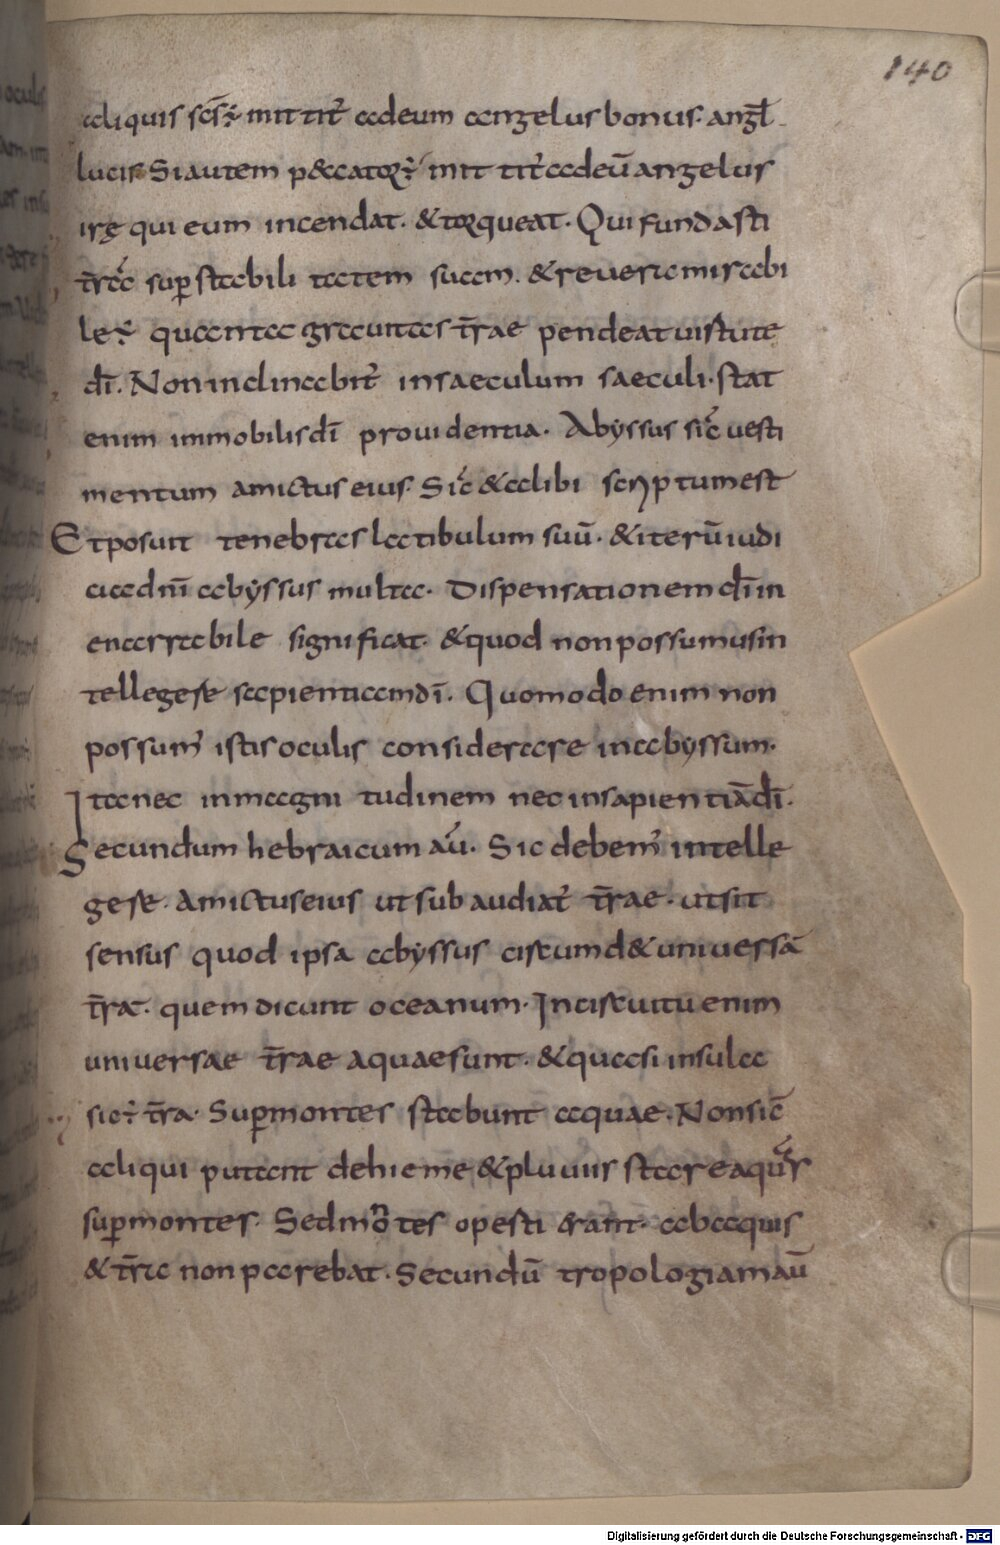 140
aliquis scs ÷ mittit̃ adeum angelus bonus. angl̃
lucis Siautem p&cator ÷ mittit̃ adeũ angelus
irę qui eum incendat. &torqueat. Qui fundasti
t̃rã sup stabilitatem suam. &reuera mirabi
le ÷ quanta grauitas t̃rae pendeat uirtute
dī. Non inclinabit̃ insaeculum saeculi. stat
enim immobilis dī prouidentia. Abyssus sic̃ uesti
mentum amictus eius. Sic̃ &alibi scriptum est
Et posuit tenebras latibulum suū. &iterū iudi
cia dn̄i abyssus multa. Dispensationem dī in
enarrabile significat. &quod non possumus in
tellegere sapientiam dī. Quomodo enim non
possum̃ istis oculis considerare in abyssum.
Ita nec in magnitudinem nec in sapientiā dī.
Secundum hebraicum aũ. Sic debem̃ intelle
gere. Amictus eius ut sub audiat̃ t̃rae. ut sit
sensus quod ipsa abyssus circumd& uniuersā
t̃rā. quem dicunt oceanum. In circuitu enim
uniuersae t̃rae aquae sunt. &quasi insula
sic ÷ t̃ra. Sup montes stabunt aquae. Non sic̄
aliqui putant de hieme &pluuiis stare aquas
sup montes. Sed mōtes operti erant. ab aquis
&t̃ra non parebat. Secundū tropologiam aū
Digitalisierung gefördert durch die Deutsche Forschungsgemeinschaft - DFG